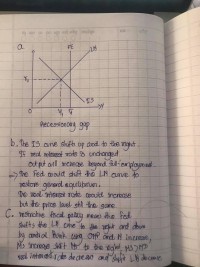 a.
r
FE
LM
r₁
IS
Y₁
Y
Y
Recessionary gap
b. The IS curve shift up and to the right.
If real interest rate is unchanged
output will increase beyond full-employment.
=> the Fed could shift the LM curve to
restore general equilibrium.
the real interest rate would increase
but the price level still the same
C. restrictive fiscal policy mean the Fed
shifts the LM curve to the right and down
by control
Ms increase shift
real interest rate decrease and shift LM